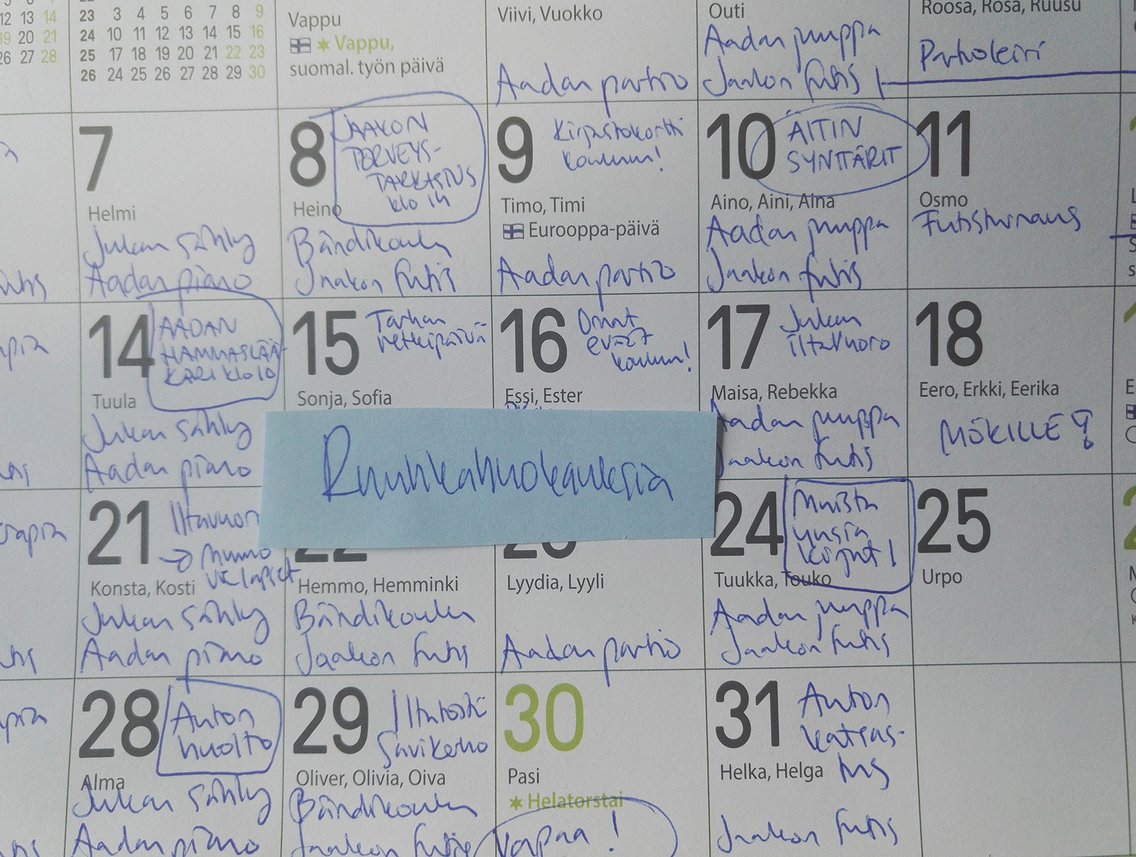 12 13 14
23 3 4 5 6 7 8 9
19 20 21
24 10 11 12 13 14 15 16
26 27 28
25 17 18 19 20 21 22 23
26 24 25 26 27 28 29 30
Vappu
Vappu,
suomal. työn päivä
Viivi, Vuokko
Aadan partio
Outi
Aadan jumppa
Jaakon futis
Roosa, Rosa, Ruusu
Partioleiri
7
Helmi
Jukan sähly
Aadan piano
8
JAAKON
TERVEYS-
TARKASTUS
klo 14
Heino
Bändikoulu
Jaakon futis
9
Kirjastokortti
kouluun!
Timo, Timi
Eurooppa-päivä
Aadan partio
10
ÄITIN
SYNTTÄRIT
Aino, Aini, Aina
Aadan jumppa
Jaakon futis
11
Osmo
Futisturnaus
14
AADAN
HAMMASLÄÄ-
KÄRI klo 10
Tuula
Jukan sähly
Aadan piano
15
Tarhan
retkipäivä
Sonja, Sofia
16
Omat
eväät
kouluun!
Essi, Ester
17
Jukan
iltavuoro
Maisa, Rebekka
Aadan jumppa
Jaakon futis
18
Eero, Erkki, Eerika
MÖKILLE?
Ruuhkahuokauksia
21
Iltavuoro
→ mummo
vie lapset
Konsta, Kosti
Jukan sähly
Aadan piano
22
Hemmo, Hemminki
Bändikoulu
Jaakon futis
23
Lyydia, Lyyli
Aadan partio
24
Muista
uusia
kirjat!
Tuukka, Touko
Aadan jumppa
Jaakon futis
25
Urpo
28
Auton
huolto
Alma
Jukan sähly
Aadan piano
29
Iltatesti
Savikerho
Oliver, Olivia, Oiva
Bändikoulu
Jaakon futis
30
Pasi
Helatorstai
Vapaa!
31
Auton
katsas-
tus
Helka, Helga
Jaakon futis